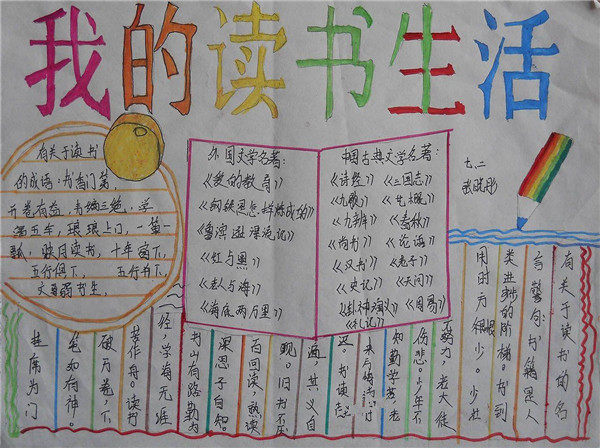 我的读书生活
有关于读书
的成语:书香门第,
开卷有益,韦编三绝,学
富五车,琅琅上口,一
映月读书,十年窗下,
五行俱下,
文弱书生,
外国文学名著:
《钢铁是怎样炼成的》
《鲁滨逊漂流记》
《红与黑》
《老人与海》
《海底两万里》
中国古典文学名著:
《诗经》《三国志》
《九歌》
《九辩》《春秋》
《尚书》《论语》
《汉书》《老子》
《史记》《天问》
《封神演义》《周易》
《礼记》
七、二
有关于读书的名
言警句:书籍是人
类进步的阶梯。书到
用时方恨少。少壮
不努力,老大徒
伤悲。少年不
知勤学苦,老
来方悔读书
迟。书读百
遍,其义自
现。旧书不厌
百回读,熟读
深思子自知。
书山有路勤为
径,学海无涯
苦作舟。读书
破万卷,下
笔如有神。